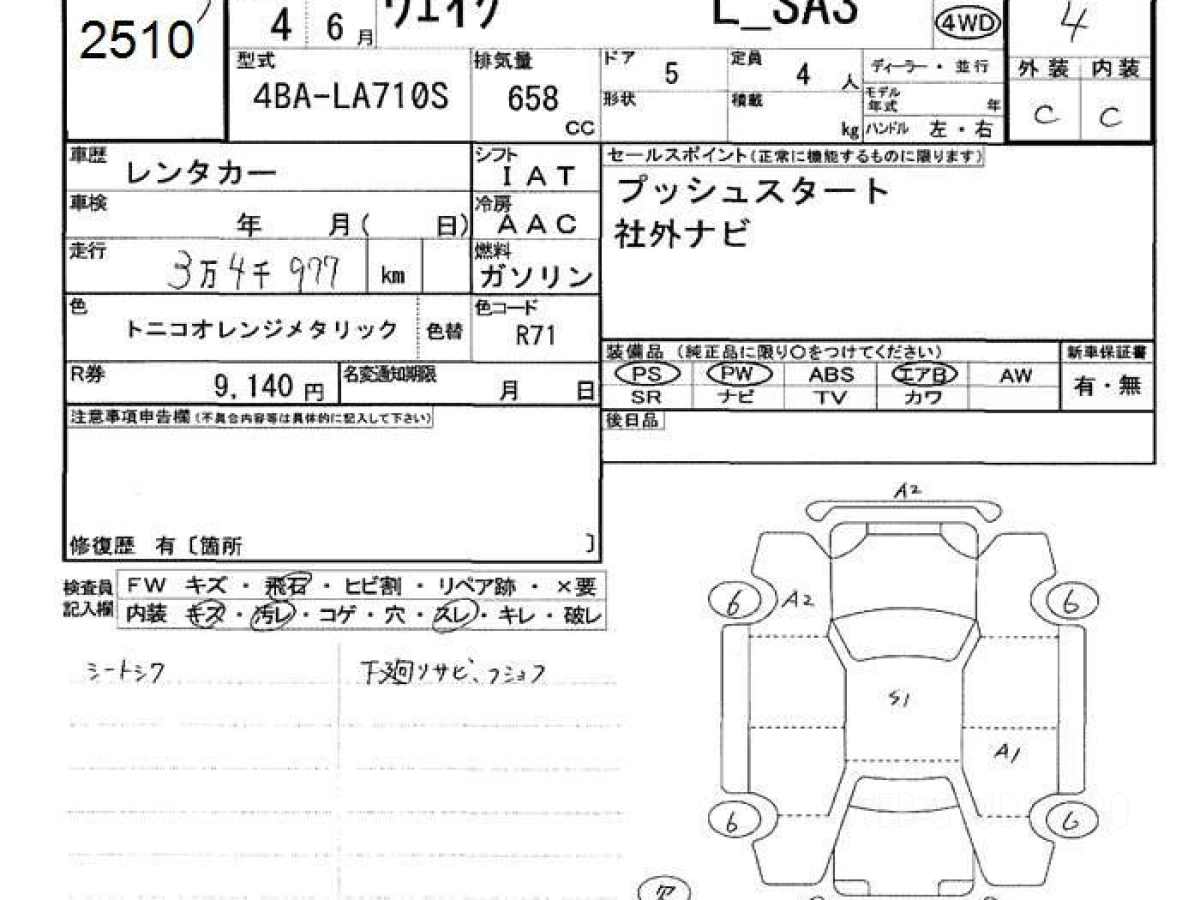 2510
4
6 月
ウェイク
L_SA3
4WD
4
型式
4BA-LA710S
排気量
658
CC
ドア
5
定員
4 人
形状
積載
kg
ディーラー ・ 並行
モデル
年式
年
ハンドル 左・右
外装 内装
C C
車歴
レンタカー
シフト
IAT
車検
年 月( 日)
冷房
AAC
走行
3万4千977
km
燃料
ガソリン
色
トニコオレンジメタリック
色替
色コード
R71
R券
9,140 円
名変通知期限
月 日
セールスポイント(正常に機能するものに限ります)
プッシュスタート
社外ナビ
装備品 (純正品に限り○をつけてください)
新車保証書
PS PW ABS エアB AW
有・無
SR ナビ TV カワ
後日品
注意事項申告欄(不具合内容等は具体的に記入して下さい)
修復歴 有〔箇所 〕
検査員
記入欄
FW キズ ・ 飛石 ・ ヒビ割 ・ リペア跡 ・ ×要
内装 キズ ・ 汚レ ・ コゲ ・ 穴 ・ スレ ・ キレ ・ 破レ
シートシワ
下廻リサビ、フショク
A2
6
A2
6
S1
A1
6
6